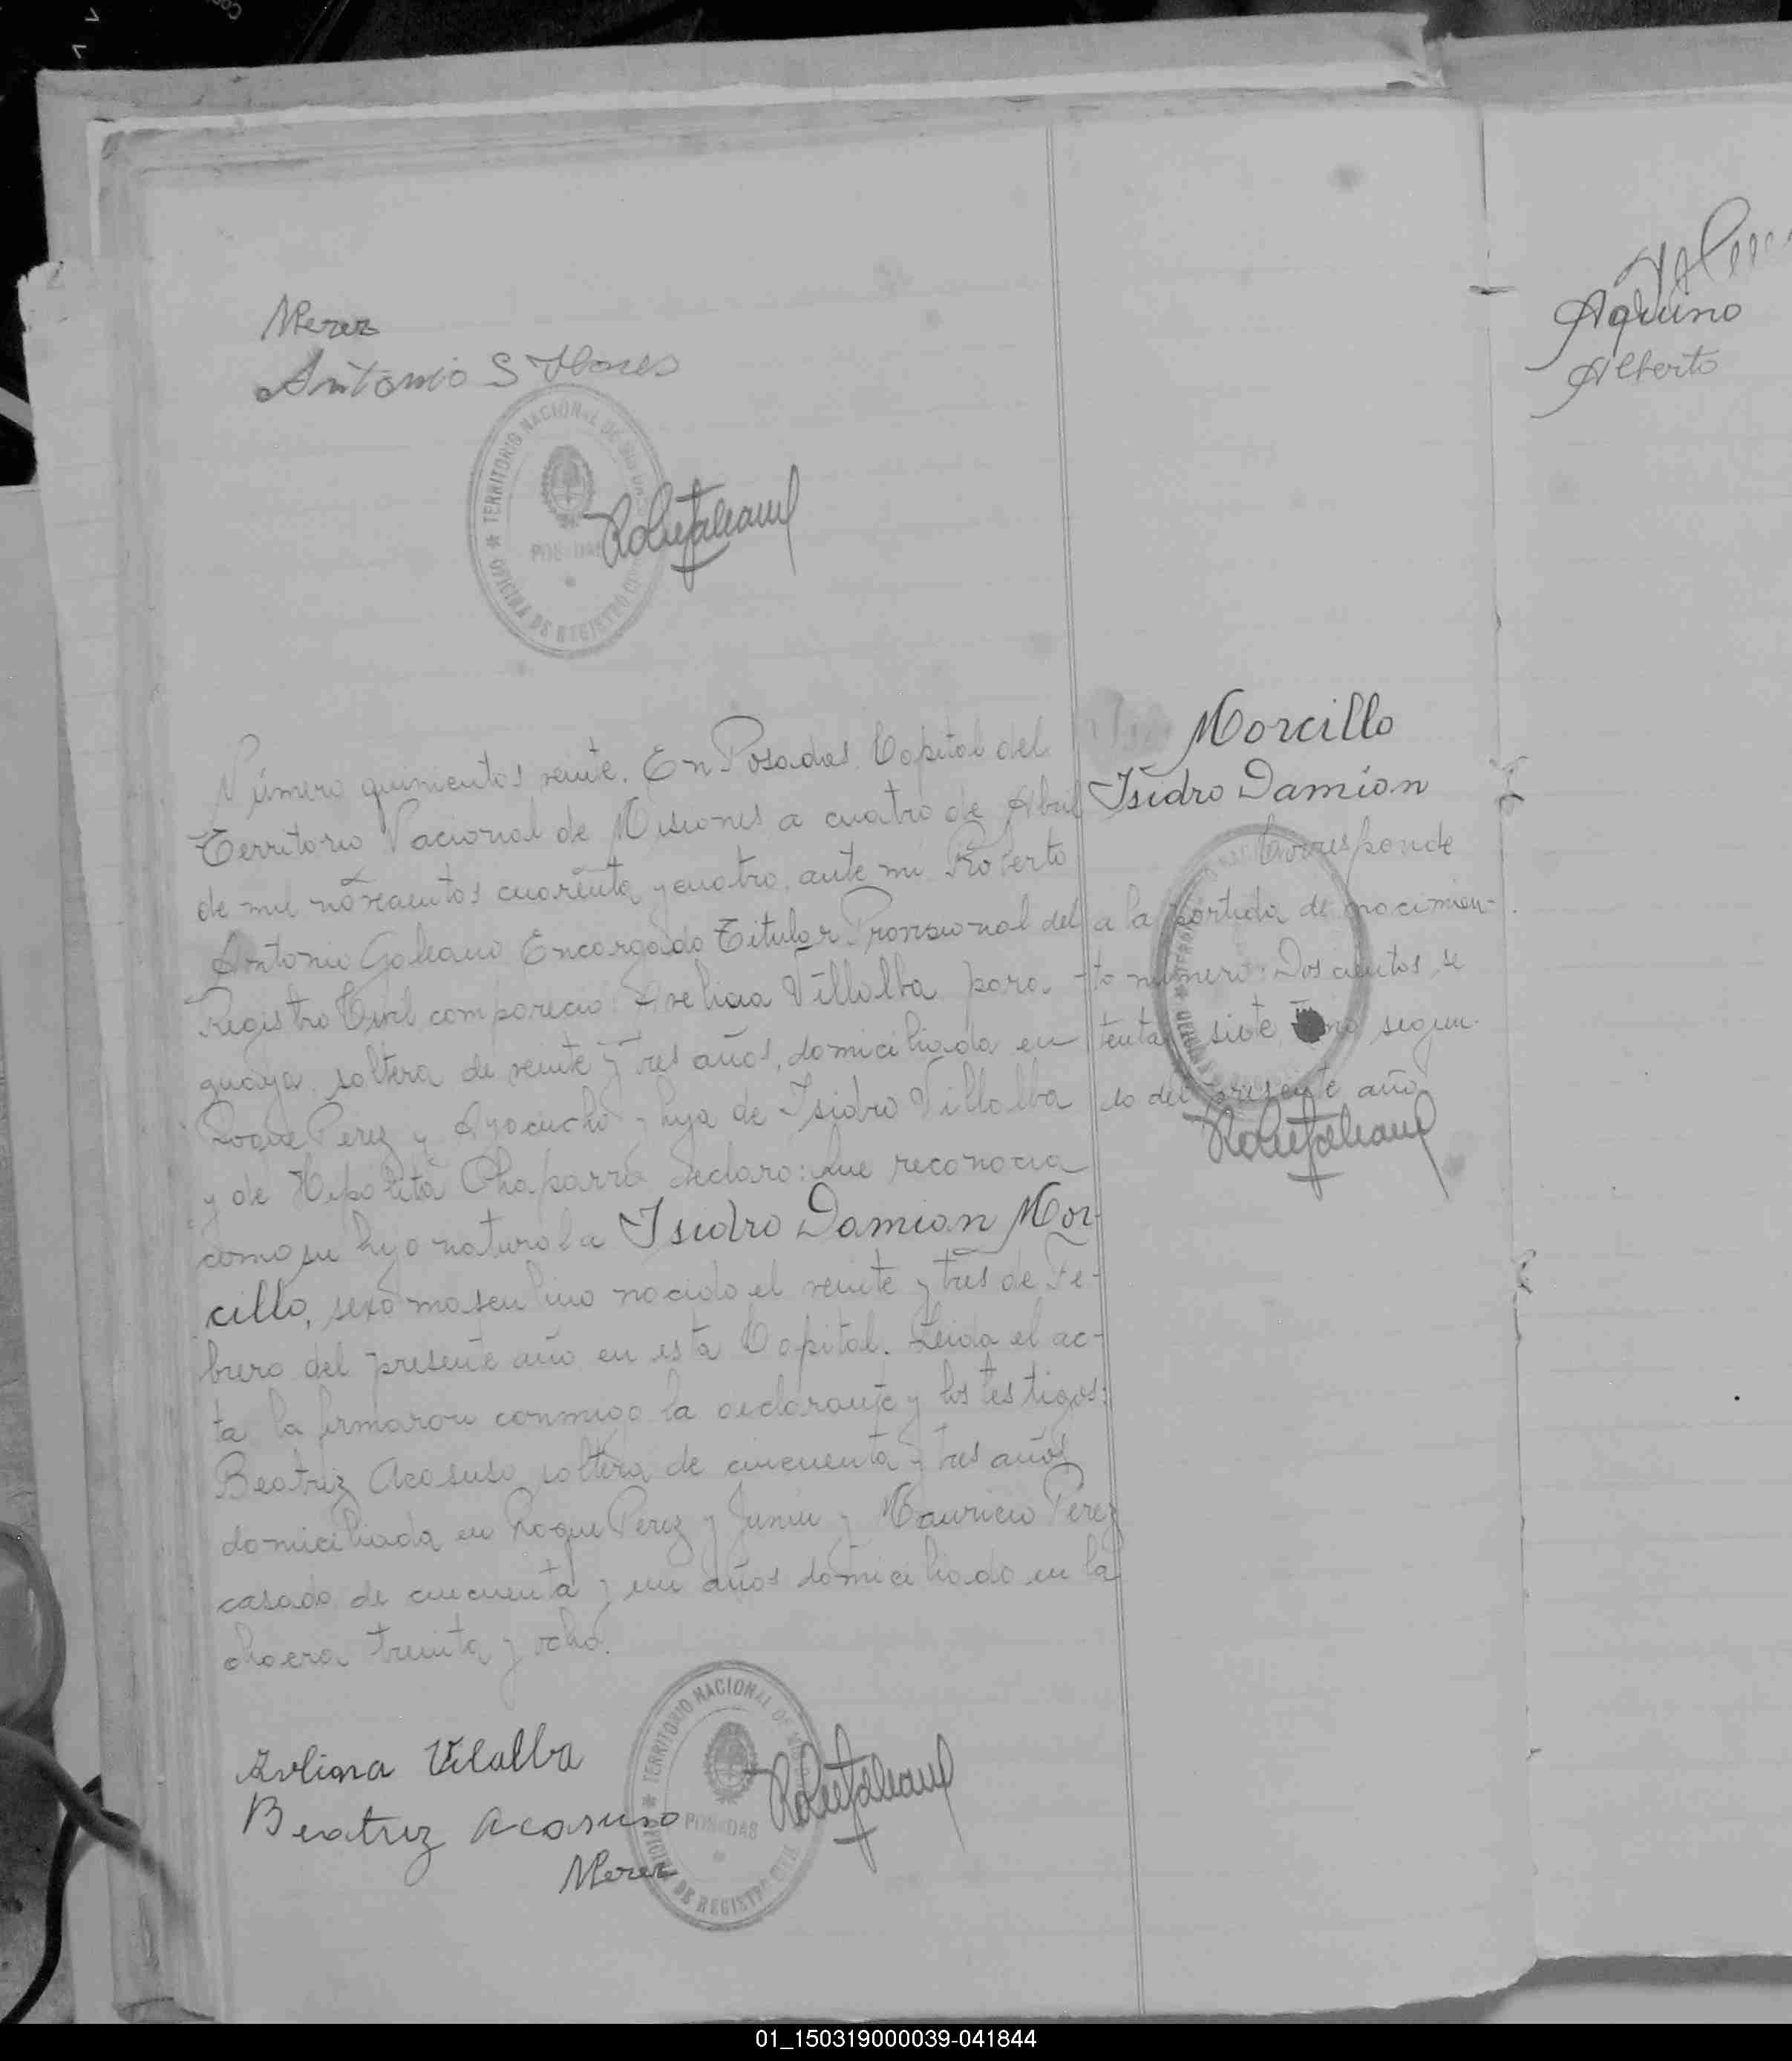 MPerez
Antonio S Flores
TERRITORIO NACIONAL DE MISIONES
POSADAS
OFICINA DE REGISTRO CIVIL
Número quinientos veinte. En Posadas, Capital del
Territorio Nacional de Misiones a cuatro de Abril
de mil novecientos cuarenta y cuatro, ante mi Roberto
Antonio Galeano Encargado Titular Provisional del
Registro Civil comparecio: Avelina Villalba para-
guaya, soltera de veinte y tres años, domiciliada en
Roque Perez y Ayacucho y hija de Isidro Villalba
y de Hipolita Chaparro declaro: Que reconocia
como su hijo natural a Isidro Damian Mor-
cillo, sexo masculino nacido el veinte y tres de Fe-
brero del presente año en esta Capital. Leida el ac-
ta la firmaron conmigo la declarante y los testigos:
Beatriz Acasuso soltera de cincuenta y tres años
domiciliada en Roque Perez y Junin y Mauricio Perez
casado de cincuenta y un años domiciliado en la
chacra treinta y ocho.
Avlina Vilalba
Beatriz Acasuso
MPerez
TERRITORIO NACIONAL DE MISIONES
POSADAS
OFICINA DE REGISTRO CIVIL
Morcillo
Isidro Damian
Corresponde
a la partida de nacimien-
to numero: Doscientos se
tenta siete segun-
do del presente año
Aquino
Alberto
01_150319000039-041844